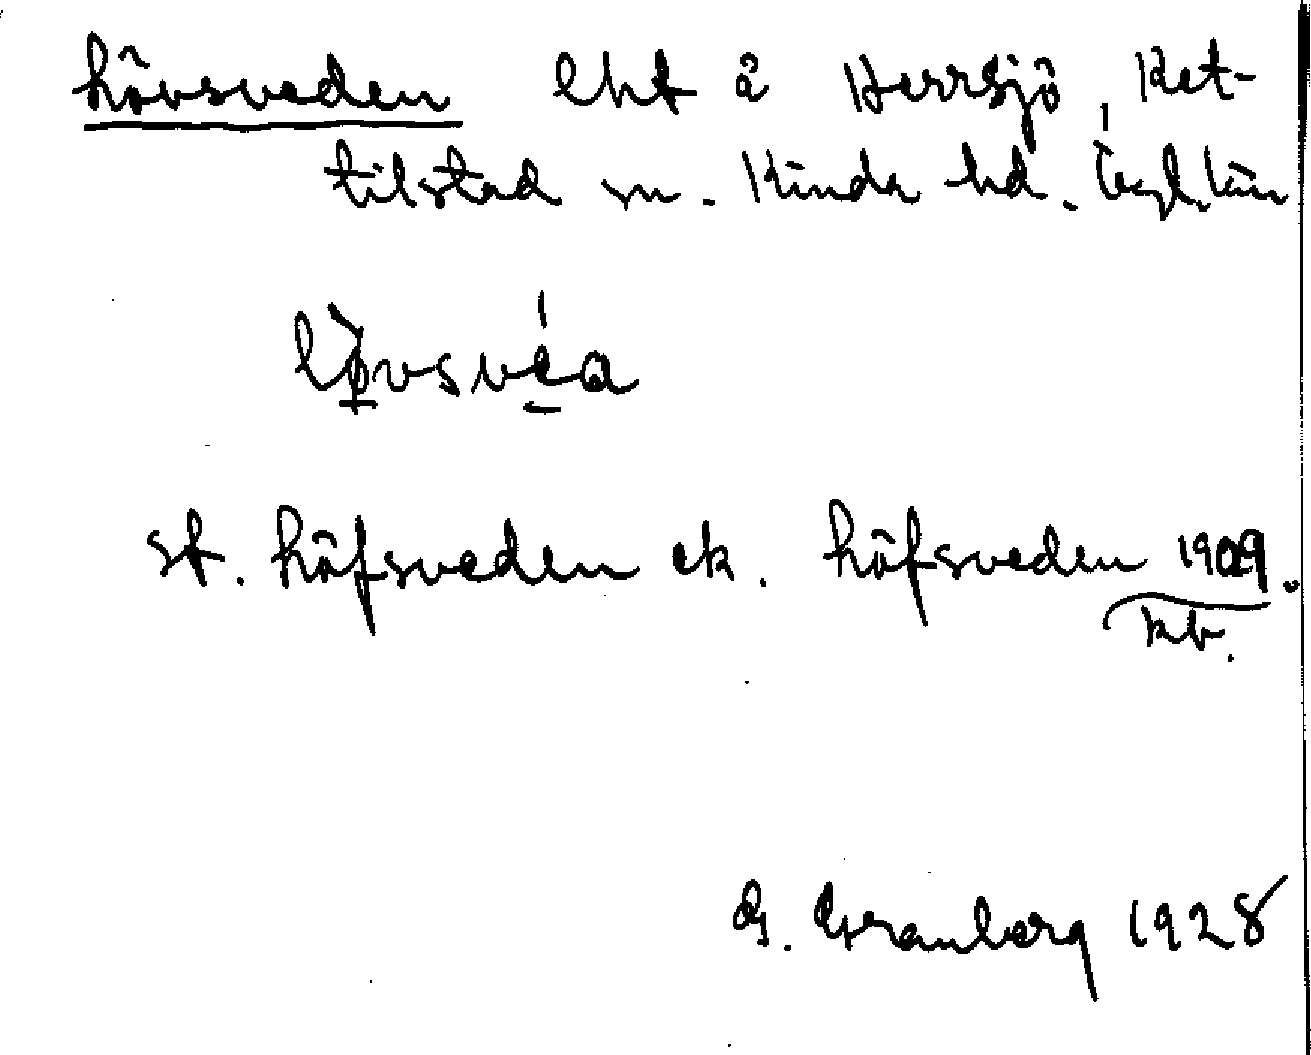 Lövsveden lht å Herrsjö, Ket-
tilstad sn. Kinda hd. Ögl. län
st. Löfsveden ek. Löfsveden 1909.
kb.
G. Granberg 1928